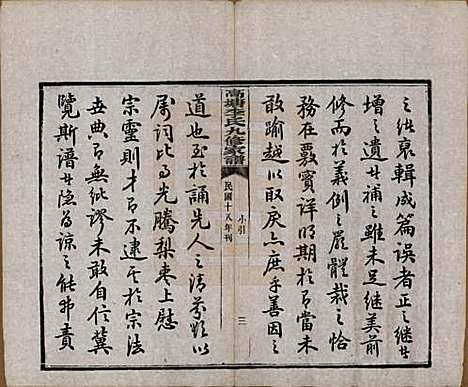 之能裒輯成篇誤者正之繼廿
增之遺廿補之雖未足继美前
修而於義例之嚴體裁之恰
務在覈實詳明期於有當未
敢踰越以取戾亦庶乎善因之
高塘李氏九修家譜
小引
三
民國十八年刊
道也至於誦先人之清芬
属詞比句光騰梨枣上慰
宗靈則才有不逮於宗法
世典有無纰謬未敢自信冀
覽斯谱廿隐而諒之能弗責